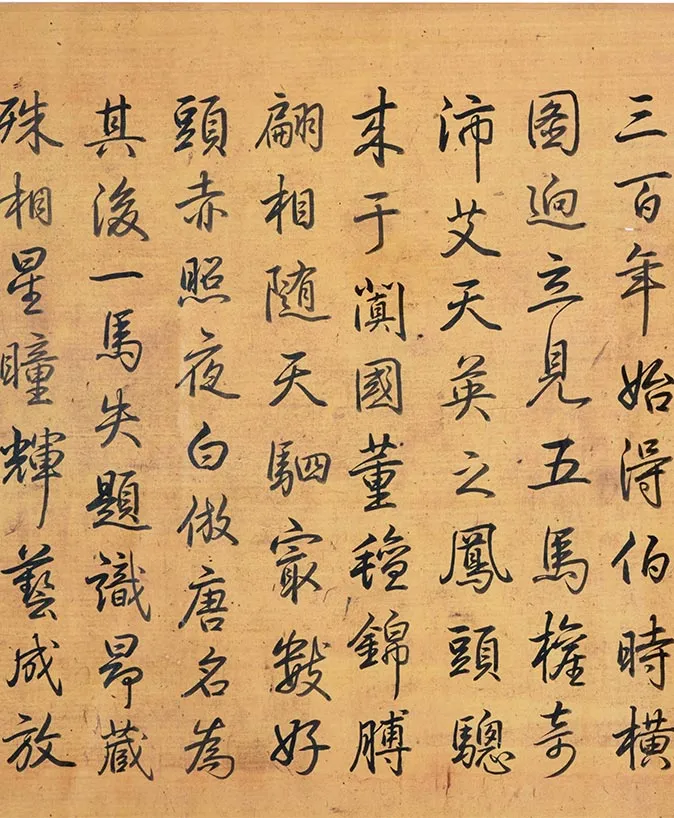 三百年始得伯時橫
圖逈立見五馬權奇
沛艾天英之鳳頭驄
来于闐國董氊錦膊
翩相随天駟㝡數好
頭赤照夜白倣唐名為
其後一馬失題識昂藏
殊相星瞳輝藝成放